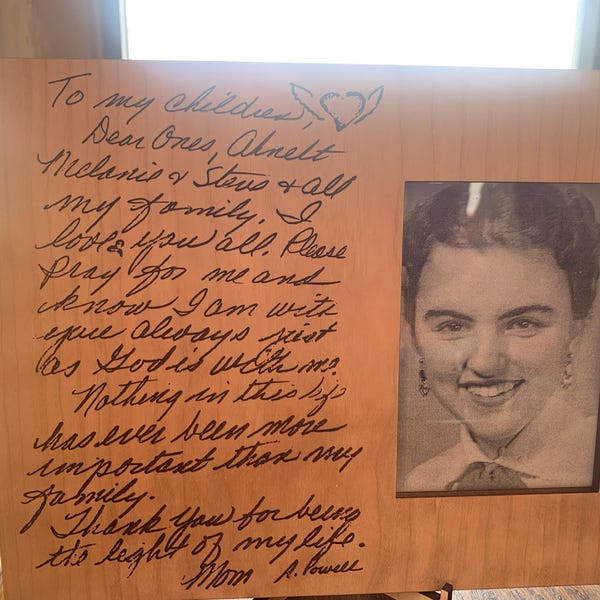 To my children,
Dear Ones, Ahnelt
Melanie & Steve & all
my family. I
love you all. Please
Pray for me and
know I am with
you always just
as God is with me.
Nothing in this life
has ever been more
important than my
family.
Thank you for being
the light of my life.
Mom A. Powell